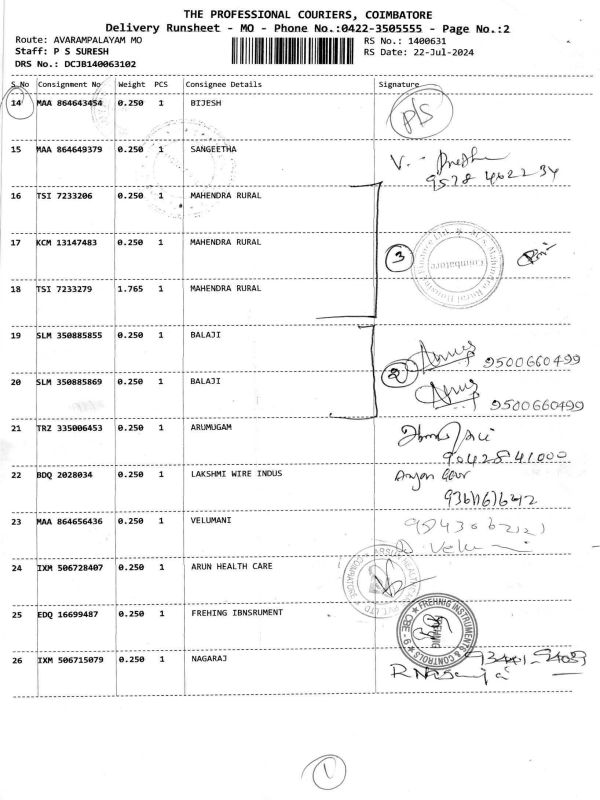 THE PROFESSIONAL COURIERS, COIMBATORE
Delivery Runsheet - MO - Phone No.:0422-3505555 - Page No.:2
Route: AVARAMPALAYAM MO
RS No.: 1400631
Staff: P S SURESH
RS Date: 22-Jul-2024
DRS No.: DCJB140063102
S No Consignment No Weight PCS Consignee Details Signature
14 MAA 864643454 0.250 1 BIJESH P/S
15 MAA 864649379 0.250 1 SANGEETHA
16 TSI 7233206 0.250 1 MAHENDRA RURAL
17 KCM 13147483 0.250 1 MAHENDRA RURAL 3
Coimbatore
18 TSI 7233279 1.765 1 MAHENDRA RURAL
19 SLM 350885855 0.250 1 BALAJI 9500660499
2
20 SLM 350885869 0.250 1 BALAJI 9500660499
21 TRZ 335006453 0.250 1 ARUMUGAM
9042841000
22 BDQ 2028034 0.250 1 LAKSHMI WIRE INDUS
23 MAA 864656436 0.250 1 VELUMANI
24 IXM 506728407 0.250 1 ARUN HEALTH CARE
25 EDQ 16699487 0.250 1 FREHING IBNSRUMENT
FREHNIG INSTRUMENTS & CONTROLS ★ CBE - 9 ★
26 IXM 506715079 0.250 1 NAGARAJ
1